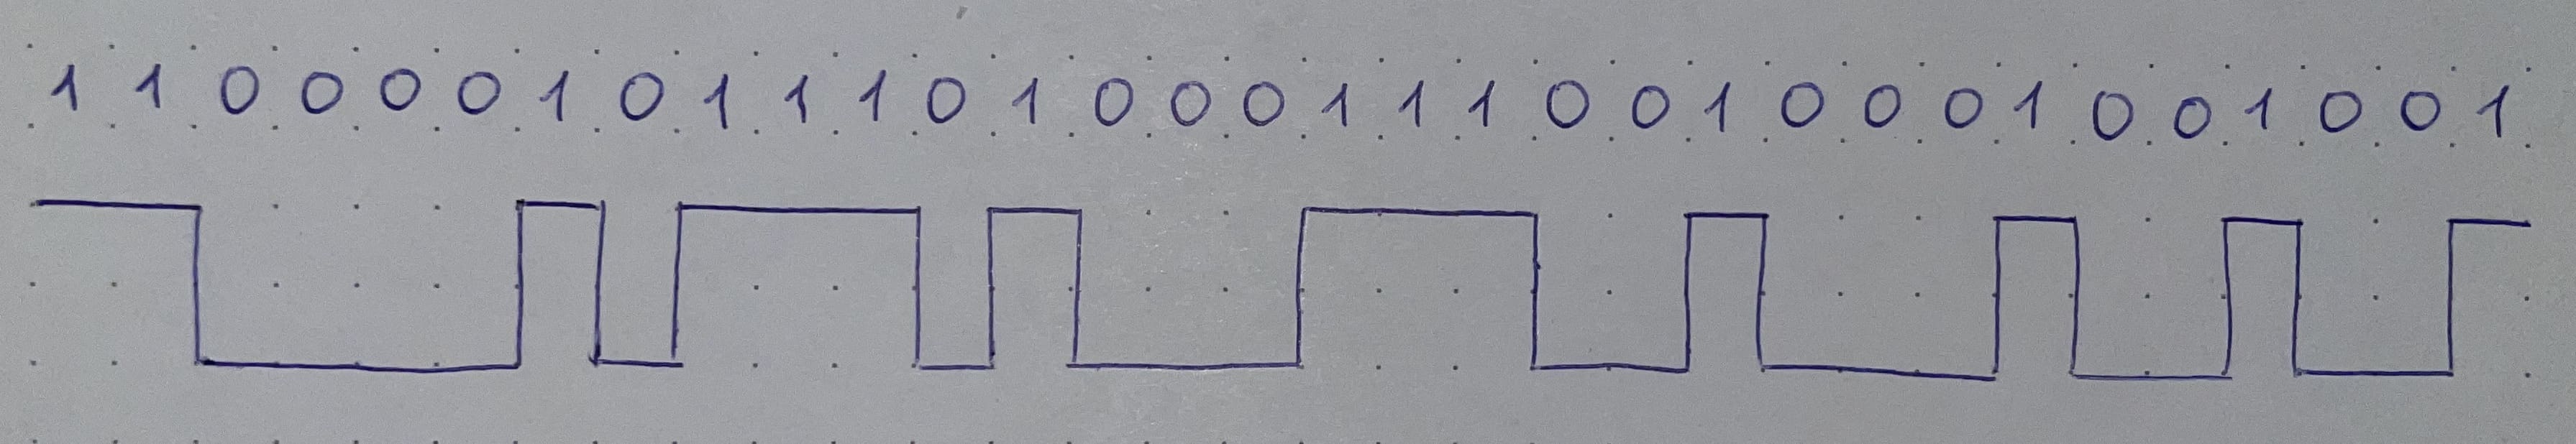 1 1 0 0 0 0 1 0 1 1 1 0 1 0 0 0 1 1 1 0 0 1 0 0 0 1 0 0 1 0 0 1